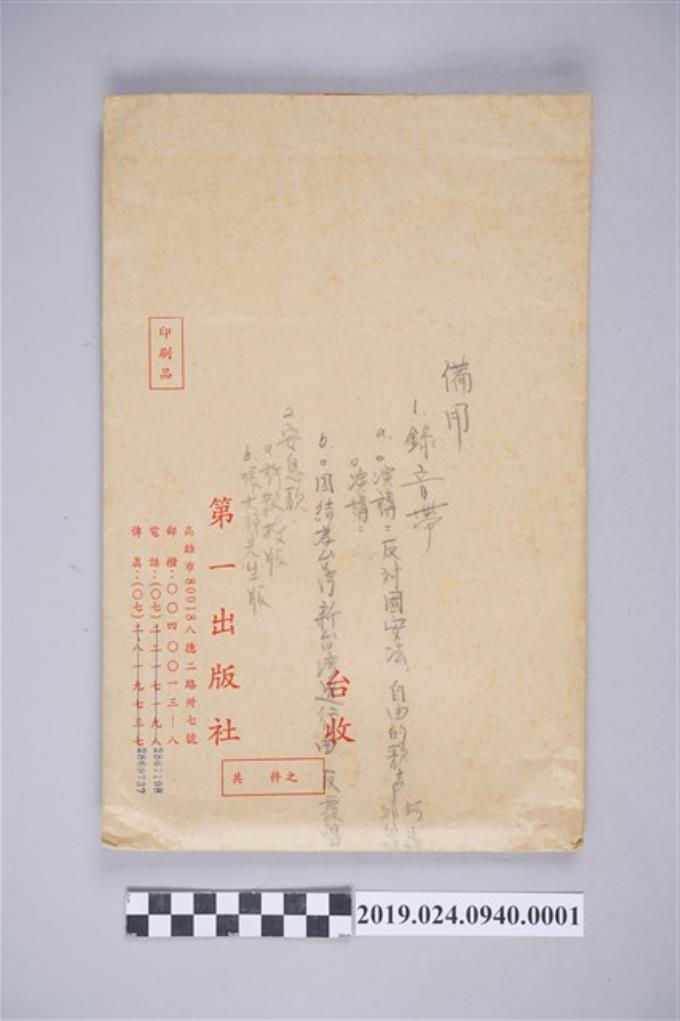 備用
1. 錄音帶
a. 。演講：反對國安法，自由的歌声
。演講：
b. 。團結為台灣 新台灣進行曲 反覆唱
台收
2. 安息歌
a. 許教授版
b. 張大哥先生版
第一出版社
高雄市80018八德二路卅七號
郵撥：〇〇四〇〇一三—八
電話：(〇七)二二一七一九八
2867198
傳真：(〇七)二八一九七三七
2869737
印刷品
共 件之
2019.024.0940.0001